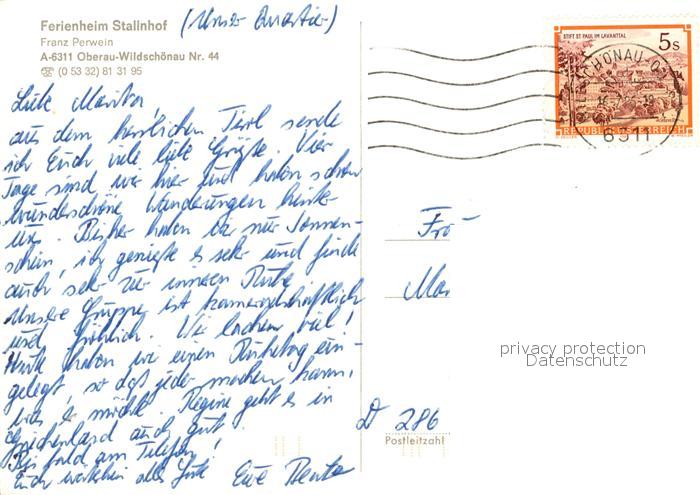 Ferienheim Stallnhof (Unser Quartier)
Franz Perwein
A-6311 Oberau-Wildschönau Nr. 44
☎ (0 53 32) 81 31 95
Liebe Marita,
aus dem herrlichen Tirol sende
ich Euch viele liebe Grüße. Vier
Tage sind wir hier und haben schon
wunderschöne Wanderungen hinter
uns. Bisher haben wir nur Sonnen-
schein, ich genieße es sehr und finde
auch sehr zur inneren Ruhe
Unsere Gruppe ist kameradschaftlich
und fröhlich. Wir lachen viel!
Heute haben wir einen Ruhetag ein-
gelegt, so daß jeder machen kann,
was er möchte. Regine geht es in
Griechenland auch gut.
Bis bald am Telefon!
Euch weiterhin alles Gute Eure
STIFT ST. PAUL IM LAVANTTAL
5 S
REPUBLIK ÖSTERREICH
WILDSCHÖNAU-O
6311
Fr
Ma
privacy protection
Datenschutz
D 286
Postleitzahl